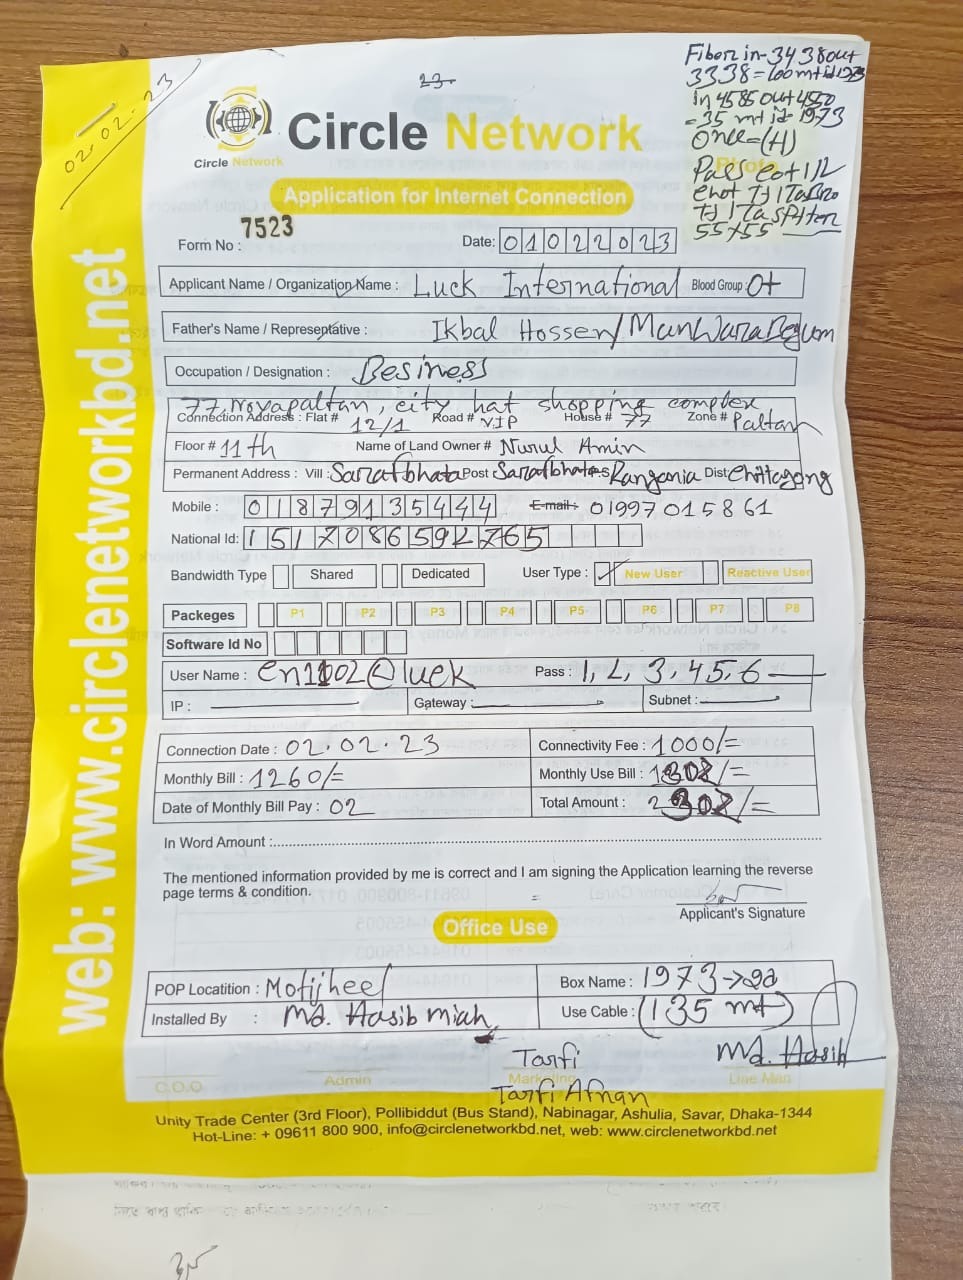 02.02.23
23
Fiber in-3438 out
3338=100 mt id 1973
in 4585 out 4550
=35 mt id 1973
Onu=(H)
55x55
Circle Network
Circle Network
Application for Internet Connection
Form No : 7523
Date: 01022023
Applicant Name / Organization Name : Luck International Blood Group : O+
Father's Name / Represeptative : Ikbal Hossen/Manwara Begum
Occupation / Designation : Besiness
77, Noyapaltan, city hat shopping complex
Connection Address : Flat # 12/1 Road # VIP House # 77 Zone # Paltan
Floor # 11th Name of Land Owner # Nurul Amin
Permanent Address : Vill : Sarafbhata Post : Sarafbhata P.S Rangonia Dist: Chittagong
Mobile : 01879135444 E-mail : 01997015861
National Id: 1517086592765
Bandwidth Type Shared Dedicated User Type : New User Reactive User
Packeges P1 P2 P3 P4 P5 P6 P7 P8
Software Id No
User Name : en1102@luck Pass : 1,2,3,4,5,6
IP : Gateway : Subnet :
Connection Date : 02.02.23 Connectivity Fee : 1000/=
Monthly Bill : 1260/= Monthly Use Bill : 1302/=
Date of Monthly Bill Pay : 02 Total Amount : 2302/=
In Word Amount :
The mentioned information provided by me is correct and I am signing the Application learning the reverse
page terms & condition.
Applicant's Signature
Office Use
POP Locatition : Motijheel Box Name : 1973
Installed By : Md. Hasib miah Use Cable : (135 mt)
Tarfi Md. Hasib
C.O.O Admin Marketing Line Man
Tarfi Afnan
Unity Trade Center (3rd Floor), Pollibiddut (Bus Stand), Nabinagar, Ashulia, Savar, Dhaka-1344
Hot-Line: + 09611 800 900, info@circlenetworkbd.net, web: www.circlenetworkbd.net
web: www.circlenetworkbd.net